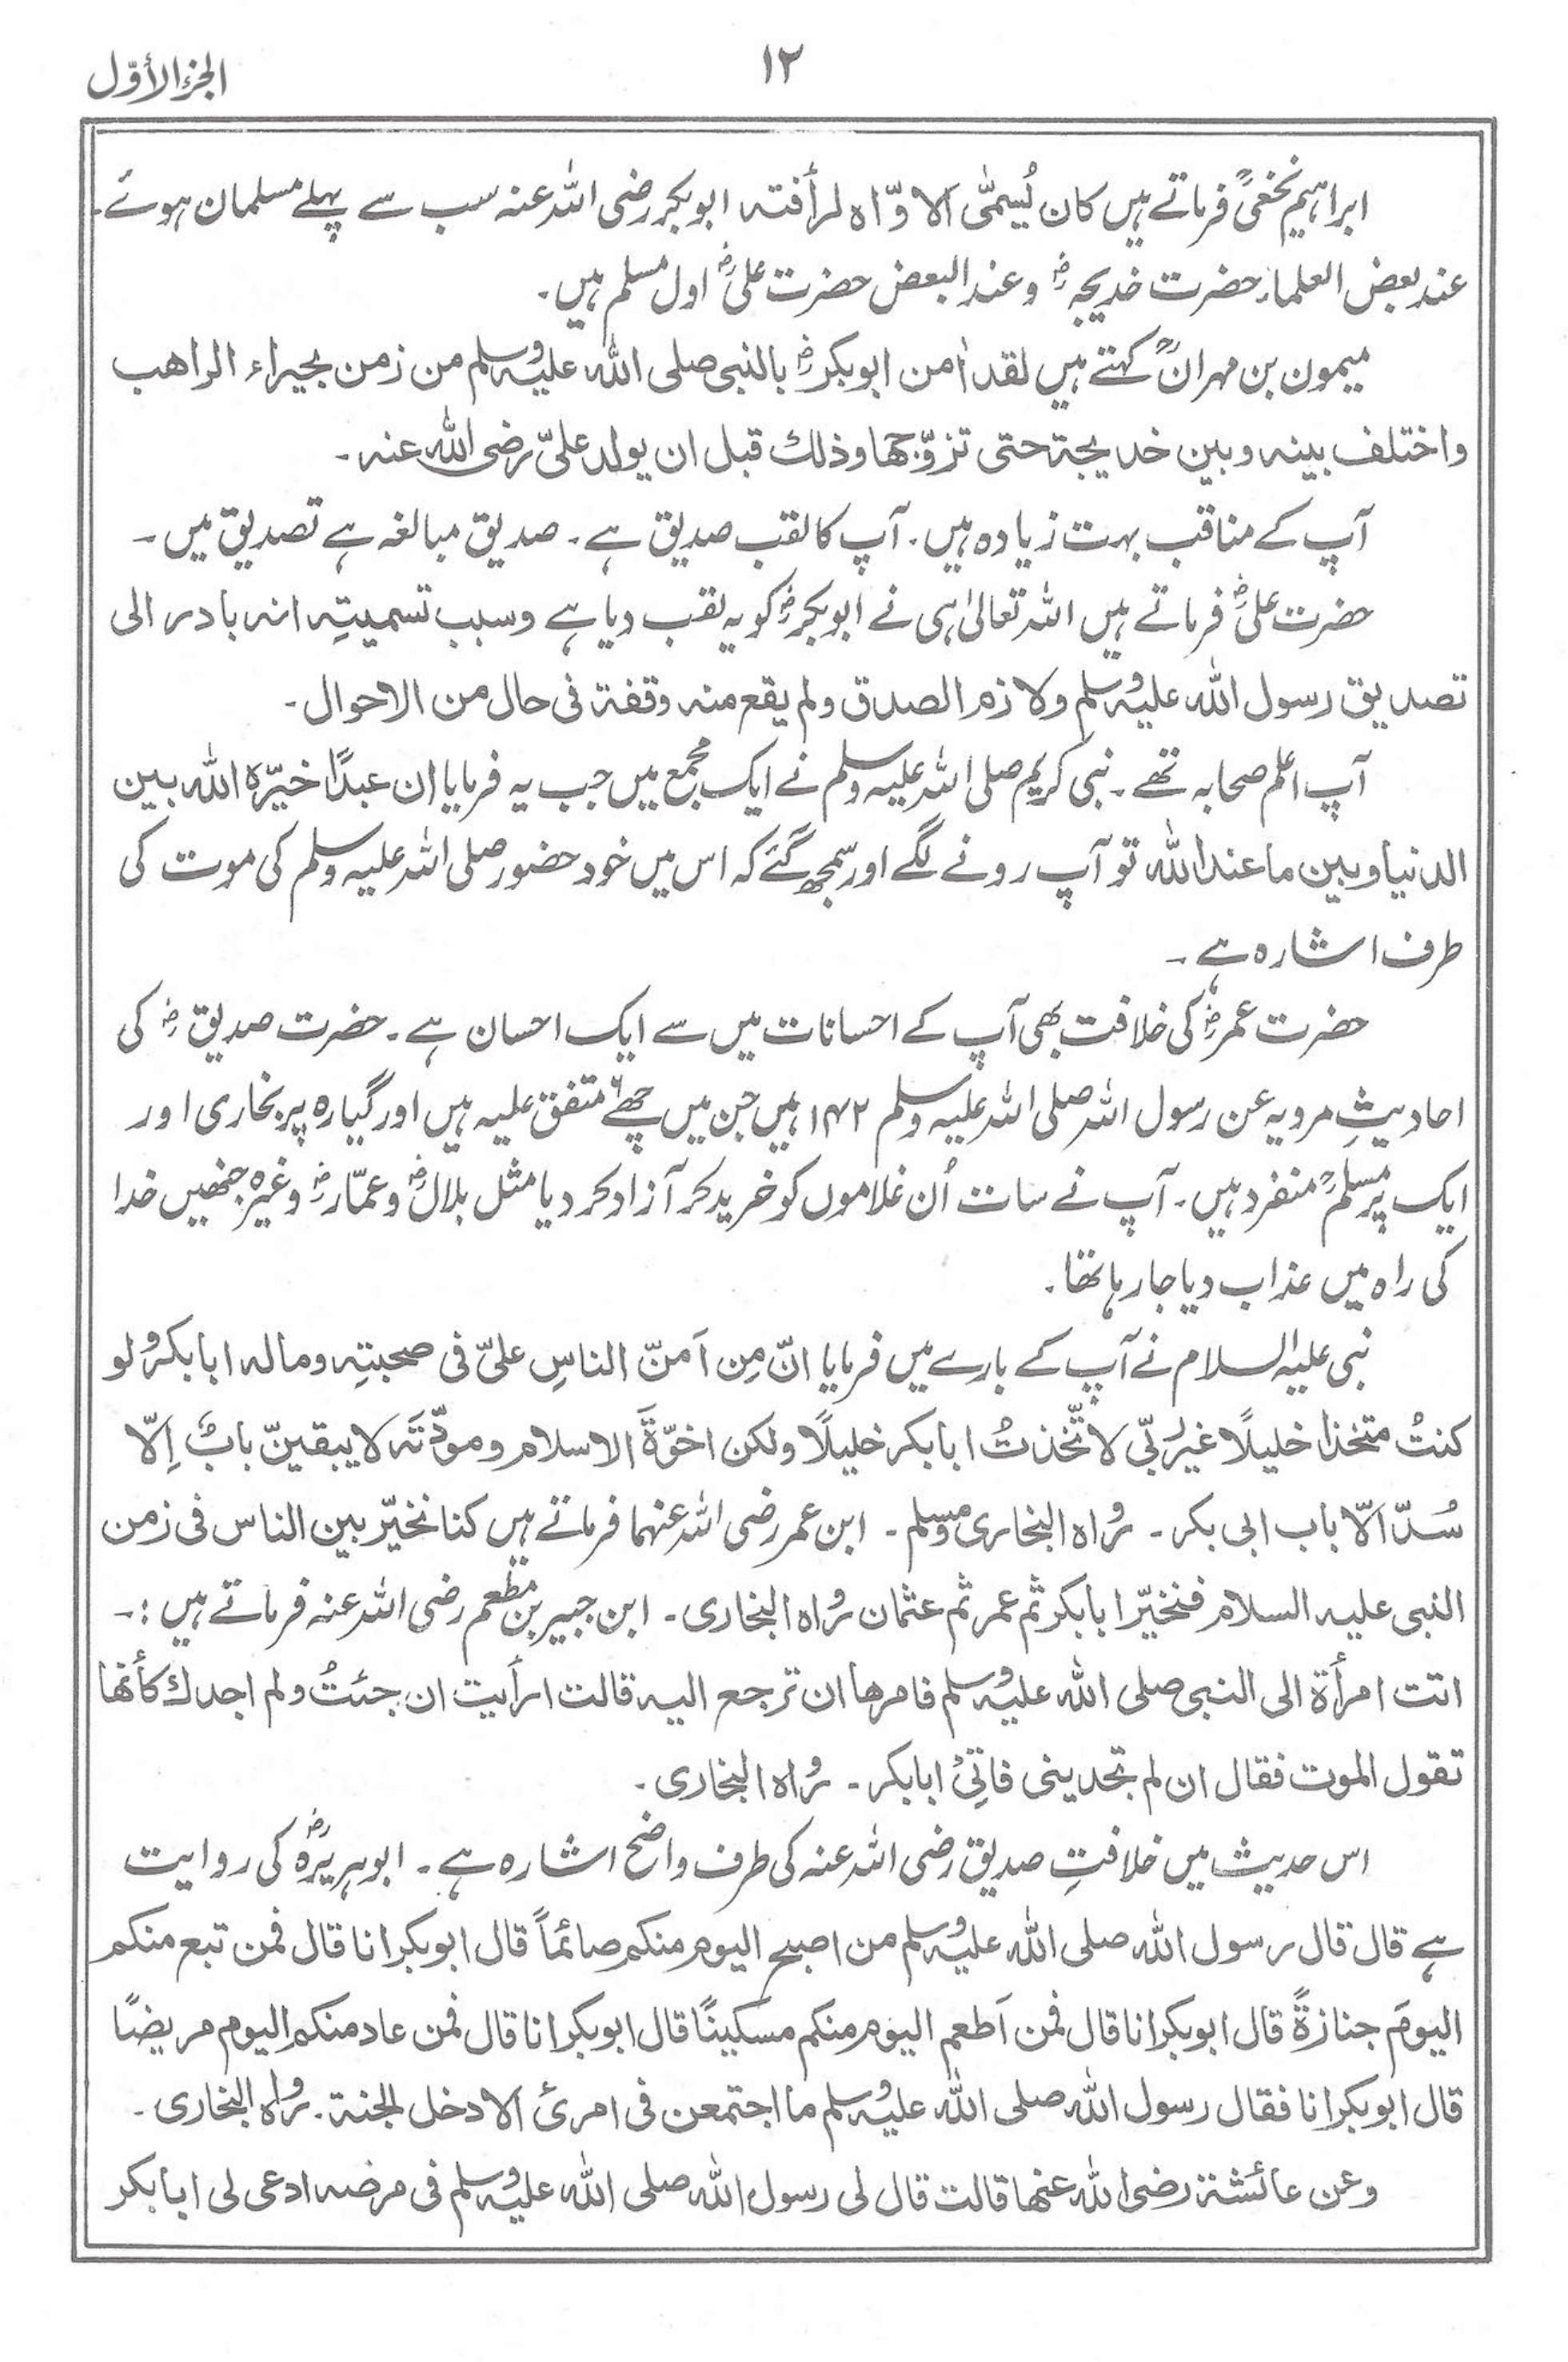 ۱۲
الجزء الأوّل
ابراہیم نخعیؒ فرماتے ہیں کان یُسمّٰی الاوّاہ لرأفتہ ابوبکر رضی اللہ عنہ سب سے پہلے مسلمان ہوئے۔
عند بعض العلماء حضرت خدیجہؓ وعند البعض حضرت علیؓ اول مسلم ہیں۔
میمون بن مہرانؒ کہتے ہیں لقد اٰمن ابوبکرؓ بالنبی صلی اللہ علیہ وسلم من زمن بحیراء الراھب
واختلف بینہ وبین خدیجۃ حتی تزوّجھا وذلك قبل ان یولد علیّ رضی اللہ عنہ۔
آپ کے مناقب بہت زیادہ ہیں۔ آپ کا لقب صدیق ہے۔ صدیق مبالغہ ہے تصدیق میں۔
حضرت علیؓ فرماتے ہیں اللہ تعالیٰ ہی نے ابوبکرؓ کو یہ لقب دیا ہے وسبب تسمیتِہ انہ بادر الی
تصدیق رسول اللہ علیہ وسلم ولازم الصدق ولم یقع منہ وقفۃ فی حال من الاحوال۔
آپ اعلم صحابہ تھے۔ نبی کریم صلی اللہ علیہ وسلم نے ایک مجمع میں جب یہ فرمایا ان عبدًا خیّرہ اللہ بین
الدنیا وبین ما عند اللہ تو آپ رونے لگے اور سمجھ گئے کہ اس میں خود حضور صلی اللہ علیہ وسلم کی موت کی
طرف اشارہ ہے۔
حضرت عمرؓ کی خلافت بھی آپ کے احسانات میں سے ایک احسان ہے۔ حضرت صدیقؓ کی
احادیثِ مرویہ عن رسول اللہ صلی اللہ علیہ وسلم ۱۴۲ ہیں جن میں چھ۶ متفق علیہ ہیں اور گیارہ پر بخاری اور
ایک پر مسلمؒ منفرد ہیں۔ آپ نے سات اُن غلاموں کو خرید کر آزاد کر دیا مثل بلالؓ وعمّارؓ وغیرہ جنھیں خدا
کی راہ میں عذاب دیا جا رہا تھا۔
نبی علیہ السلام نے آپ کے بارے میں فرمایا انّ مِن اَمنّ الناسِ علیّ فی صحبتِہ ومالہ ابابکر ولو
کنتُ متخذا خلیلًا غیر ربّی لاتّخذتُ ابابکر خلیلًا ولکن اخوّۃَ الاسلام ومودّتَہ لا یبقینّ بابٌ اِلّا
سُدّ الّا باب ابی بکر۔ رواہ البخاری ومسلم۔ ابن عمر رضی اللہ عنہما فرماتے ہیں کنا نخیّر بین الناس فی زمن
النبی علیہ السلام فنخیّر ابابکر ثم عمر ثم عثمان رواہ البخاری۔ ابن جبیر بن مطعم رضی اللہ عنہ فرماتے ہیں :۔
اتت امرأۃ الی النبی صلی اللہ علیہ وسلم فامرھا ان ترجع الیہ قالت ارأیت ان جئتُ ولم اجدك کأنھا
تقول الموت فقال ان لم تجدینی فاتِیْ ابابکر۔ رواہ البخاری۔
اس حدیث میں خلافتِ صدیق رضی اللہ عنہ کی طرف واضح اشارہ ہے۔ ابوہریرہؓ کی روایت
ہے قال قال رسول اللہ صلی اللہ علیہ وسلم من اصبح الیوم منکم صائمًا قال ابوبکر انا قال فمن تبع منکم
الیومَ جنازۃً قال ابوبکر انا قال فمن اَطعم الیوم منکم مسکینًا قال ابوبکر انا قال فمن عاد منکم الیوم مریضًا
قال ابوبکر انا فقال رسول اللہ صلی اللہ علیہ وسلم ما اجتمعن فی امرئ الا دخل الجنۃ۔ رواہ البخاری۔
وعن عائشۃ رضی اللہ عنھا قالت قال لی رسول اللہ صلی اللہ علیہ وسلم فی مرضہ ادعی لی ابابکر